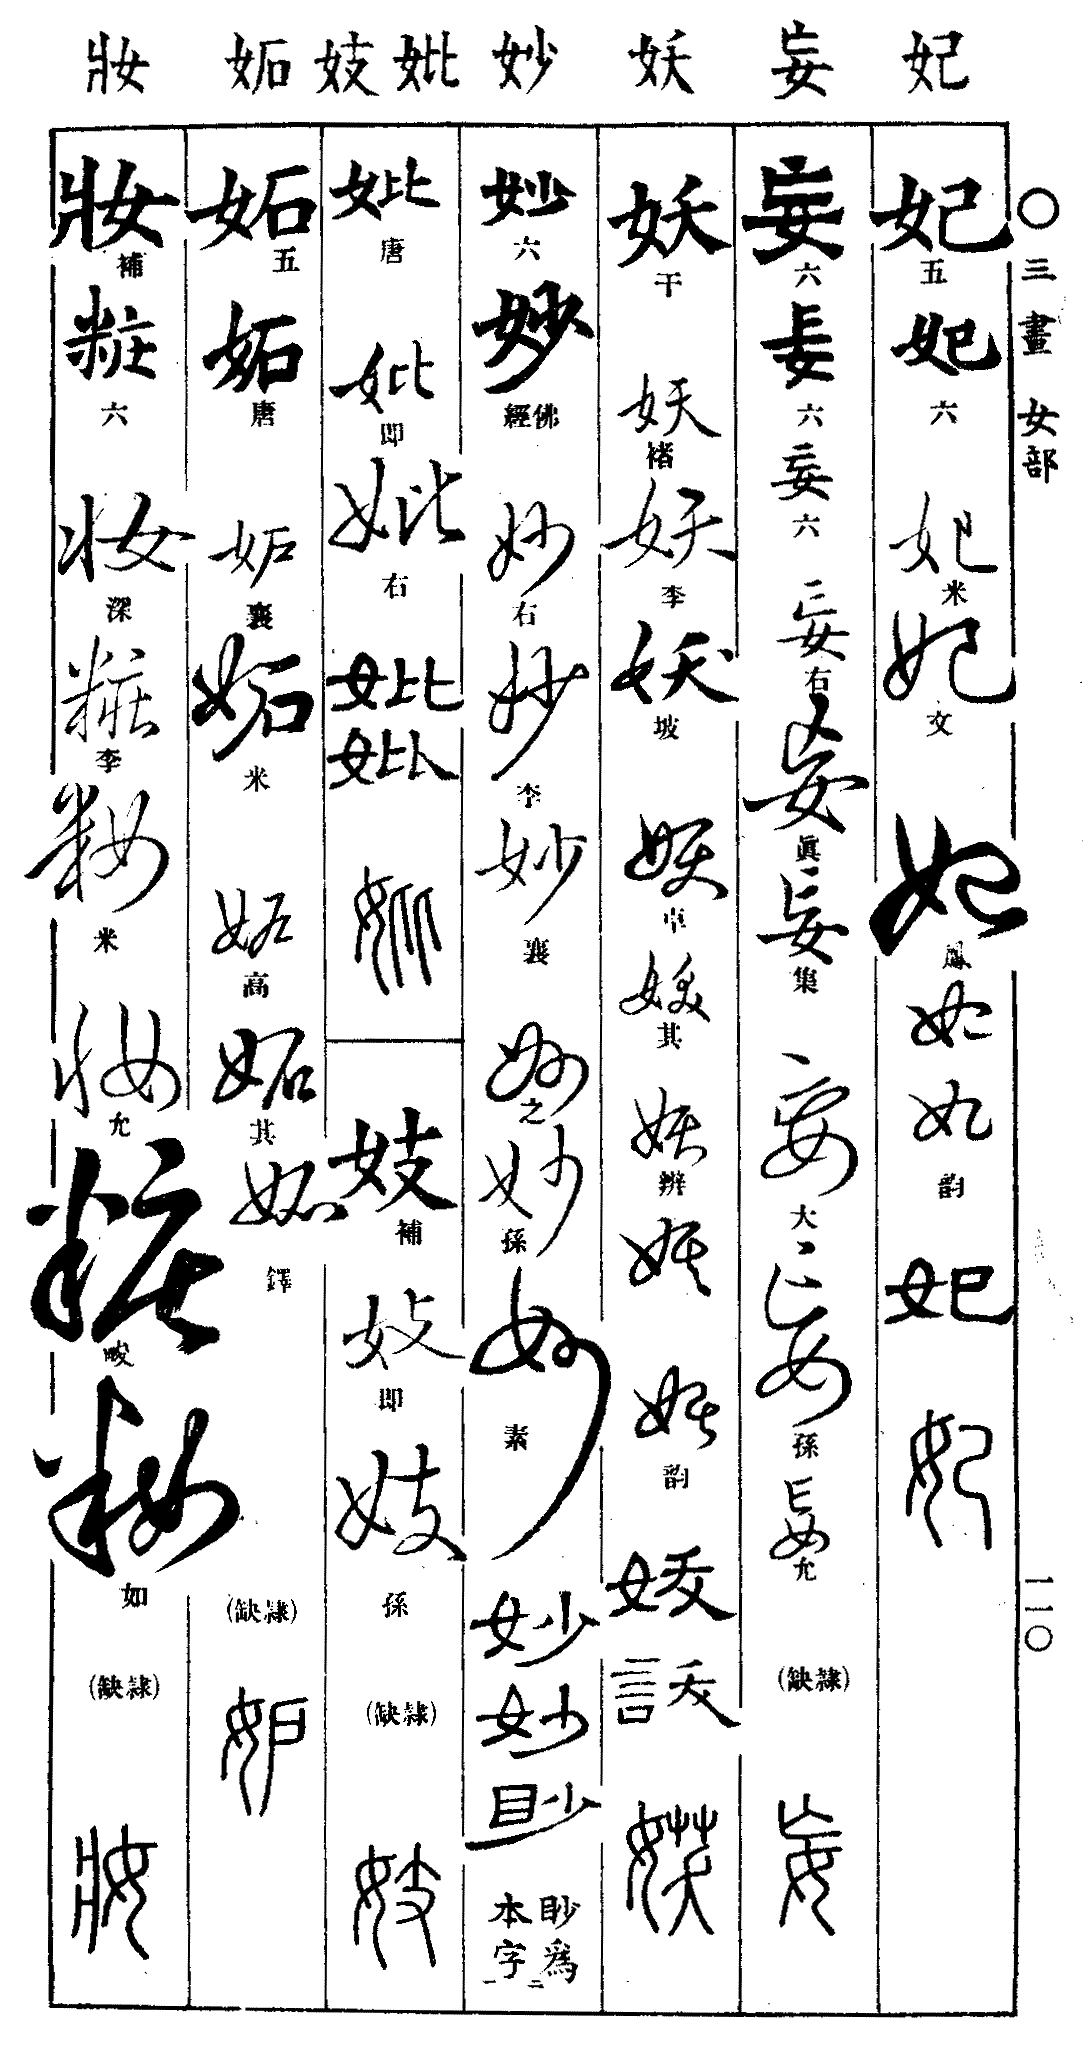 妃 妄 妖 妙 妣 妓 妬 妝
〇 三畫 女部 一一〇
妃 五 妃 六 妃 米 妃 文 妃 鳳 妃 妃 韵 妃 妃
妄 六 妄 六 妄 六 妄 右 妄 眞 妄 集 妄 大 妄 孫 妄 允 (隸缺) 妄
妖 干 妖 褚 妖 李 妖 坡 妖 卓 妖 其 妖 辨 妖 妖 韵 妖
妙 六 妙 佛經 妙 右 妙 李 妙 襄 妙 之 妙 孫 妙 素 妙 妙 眇 眇爲本字
妣 唐 妣 即 妣 右 妣 妣 妣
妓 補 妓 即 妓 孫 (隸缺) 妓
妬 五 妬 唐 妬 襄 妬 米 妬 高 妬 其 妬 鐸 (隸缺) 妬
妝 補 粧 六 妝 深 粧 李 粧 米 妝 允 粧 畯 粧 如 (隸缺) 妝